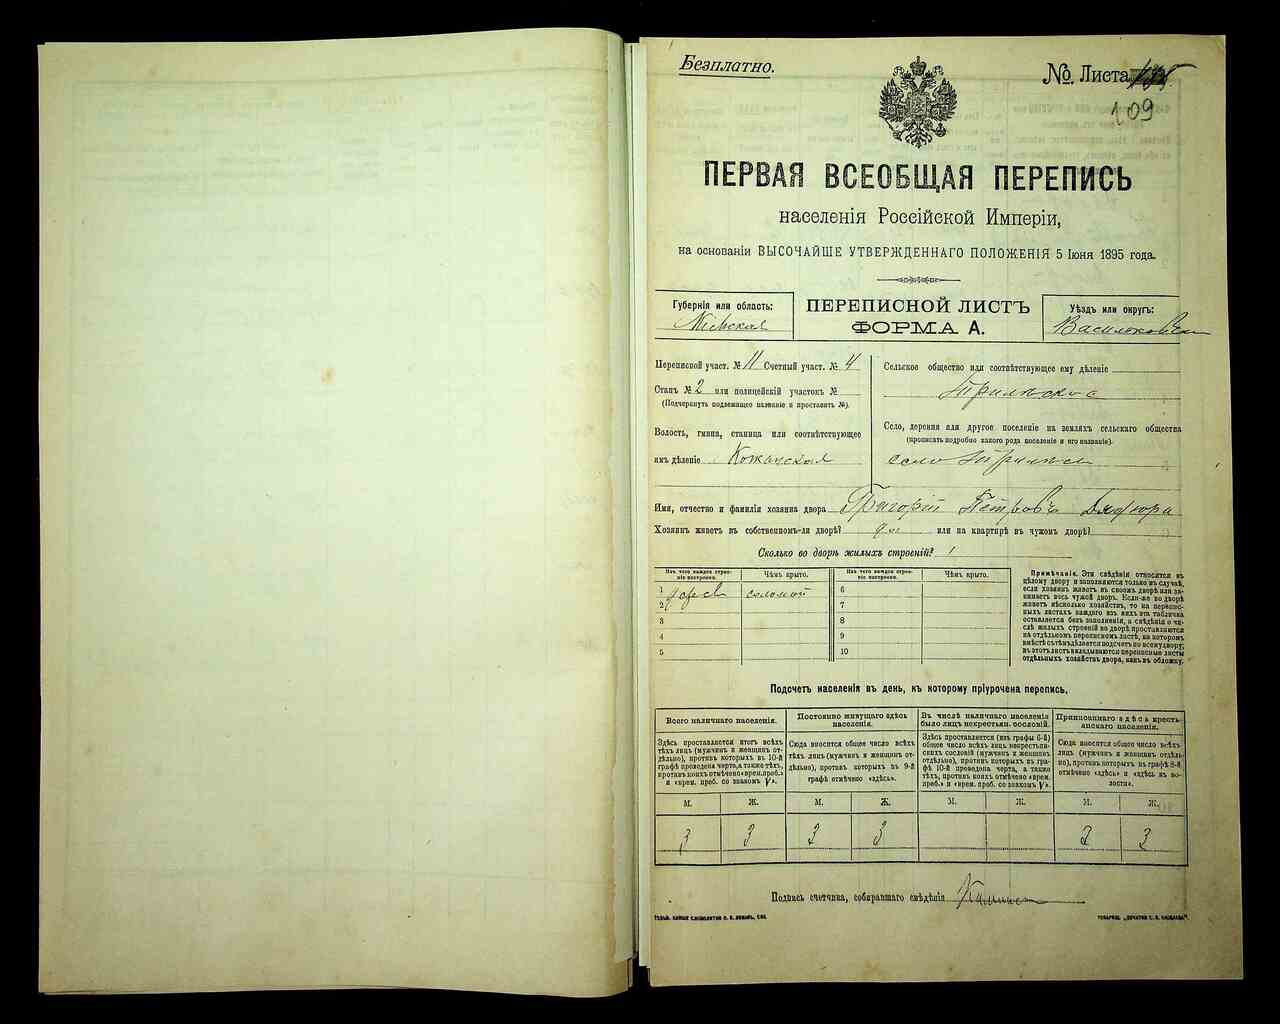 Безплатно.
№ Листа 135.
109
ПЕРВАЯ ВСЕОБЩАЯ ПЕРЕПИСЬ
населенія Россійской Имперіи,
на основаніи ВЫСОЧАЙШЕ УТВЕРЖДЕННАГО ПОЛОЖЕНІЯ 5 Іюня 1895 года.
Губернія или область:
Кіевская
ПЕРЕПИСНОЙ ЛИСТЪ
ФОРМА А.
Уѣздъ или округъ:
Васильковскій
Переписной участ. № 11 Счетный участ. № 4
Станъ № 2 или полицейскій участокъ №
(Подчеркнуть подлежащее названіе и проставить №).
Волость, гмина, станица или соотвѣтствующее
имъ дѣленіе Кожанская
Сельское общество или соотвѣтствующее ему дѣленіе
Село, деревня или другое поселеніе на земляхъ сельскаго общества
(прописать подробно какого рода поселеніе и его названіе).
село
Имя, отчество и фамилія хозяина двора Григорій Петровъ
Хозяинъ живетъ въ собственномъ-ли дворѣ? да или на квартирѣ въ чужомъ дворѣ?
Сколько во дворѣ жилыхъ строеній? 1
Изъ чего каждое строеніе построено.
Чѣмъ крыто.
Изъ чего каждое строеніе построено.
Чѣмъ крыто.
1 дерев соломой
2
3
4
5
6
7
8
9
10
Примѣчаніе. Эти свѣдѣнія относятся къ
цѣлому двору и заполняются только въ случаѣ,
если хозяинъ живетъ въ своемъ дворѣ или занимаетъ
весь чужой дворъ. Если-же во дворѣ
живетъ нѣсколько хозяйствъ, то на переписныхъ
листахъ каждаго изъ нихъ эта табличка
оставляется безъ заполненія, а свѣдѣнія о числѣ
жилыхъ строеній во дворѣ проставляются
на отдѣльномъ переписномъ листѣ, на которомъ
вмѣстѣ съ тѣмъ дѣлается подсчетъ по всему двору;
въ этотъ листъ вкладываются переписные листы
отдѣльныхъ хозяйствъ двора, какъ въ обложку.
Подсчетъ населенія въ день, къ которому пріурочена перепись.
Всего наличнаго населенія.
Постоянно живущаго здѣсь населенія.
Въ числѣ наличнаго населенія было лицъ некрестьян. сословій.
Приписаннаго здѣсь крестьянскаго населенія.
Здѣсь проставляется итогъ всѣхъ
лицъ (мужчинъ и женщинъ отдѣльно),
противъ которыхъ въ 10-й
графѣ проведена черта, а также тѣхъ,
противъ коихъ отмѣчено «врем. преб.»
и «врем. преб. со знакомъ V».
Сюда вносится общее число всѣхъ
тѣхъ лицъ (мужчинъ и женщинъ отдѣльно),
противъ которыхъ въ 9-й
графѣ отмѣчено «здѣсь».
Здѣсь проставляется (изъ графы 6-й)
общее число всѣхъ лицъ некрестьянскихъ
сословій (мужчинъ и женщинъ
отдѣльно), противъ которыхъ въ графѣ
10-й проведена черта, а также
тѣхъ, противъ коихъ отмѣчено «врем.
преб.» и «врем. преб. со знакомъ V».
Сюда вносится общее число всѣхъ
лицъ (мужчинъ и женщинъ отдѣльно),
противъ которыхъ въ графѣ 8-й
отмѣчено «здѣсь» и «здѣсь въ волости».
М. Ж. М. Ж. М. Ж. М. Ж.
3 3 3 3 3 3
Подпись счетчика, собиравшаго свѣдѣнія